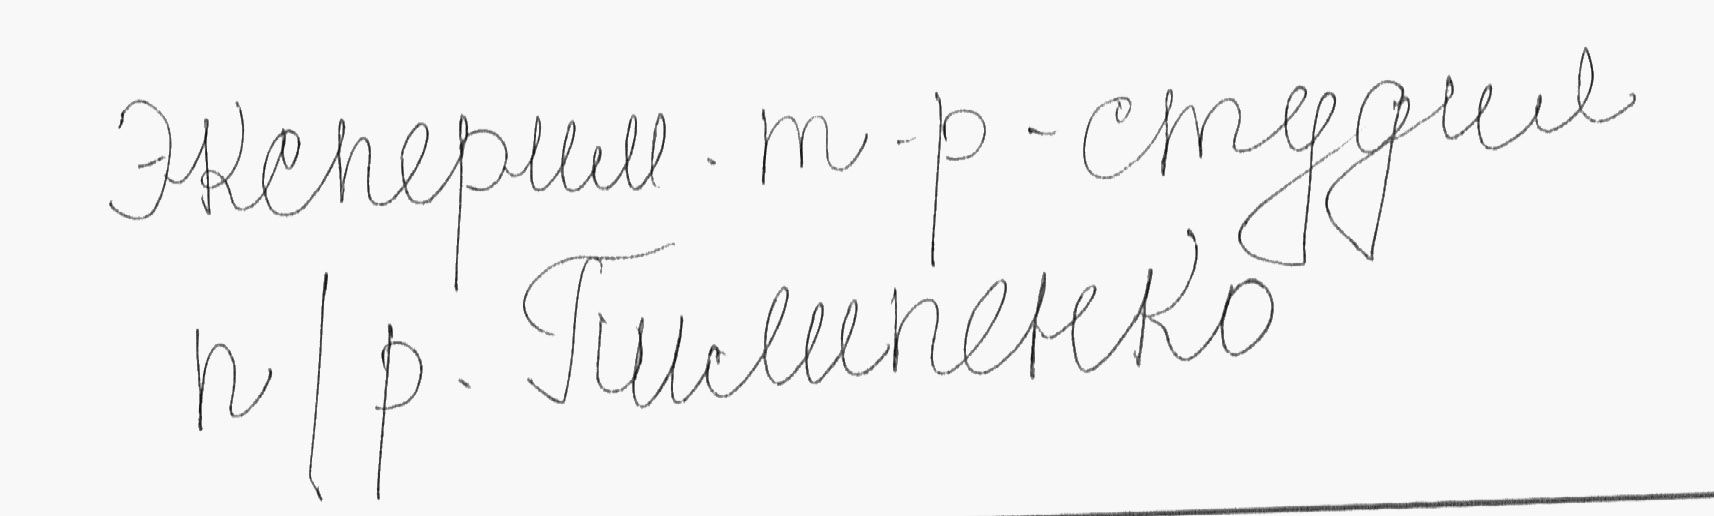 Эксперим. т-р-студии
п/р. Пилипенко